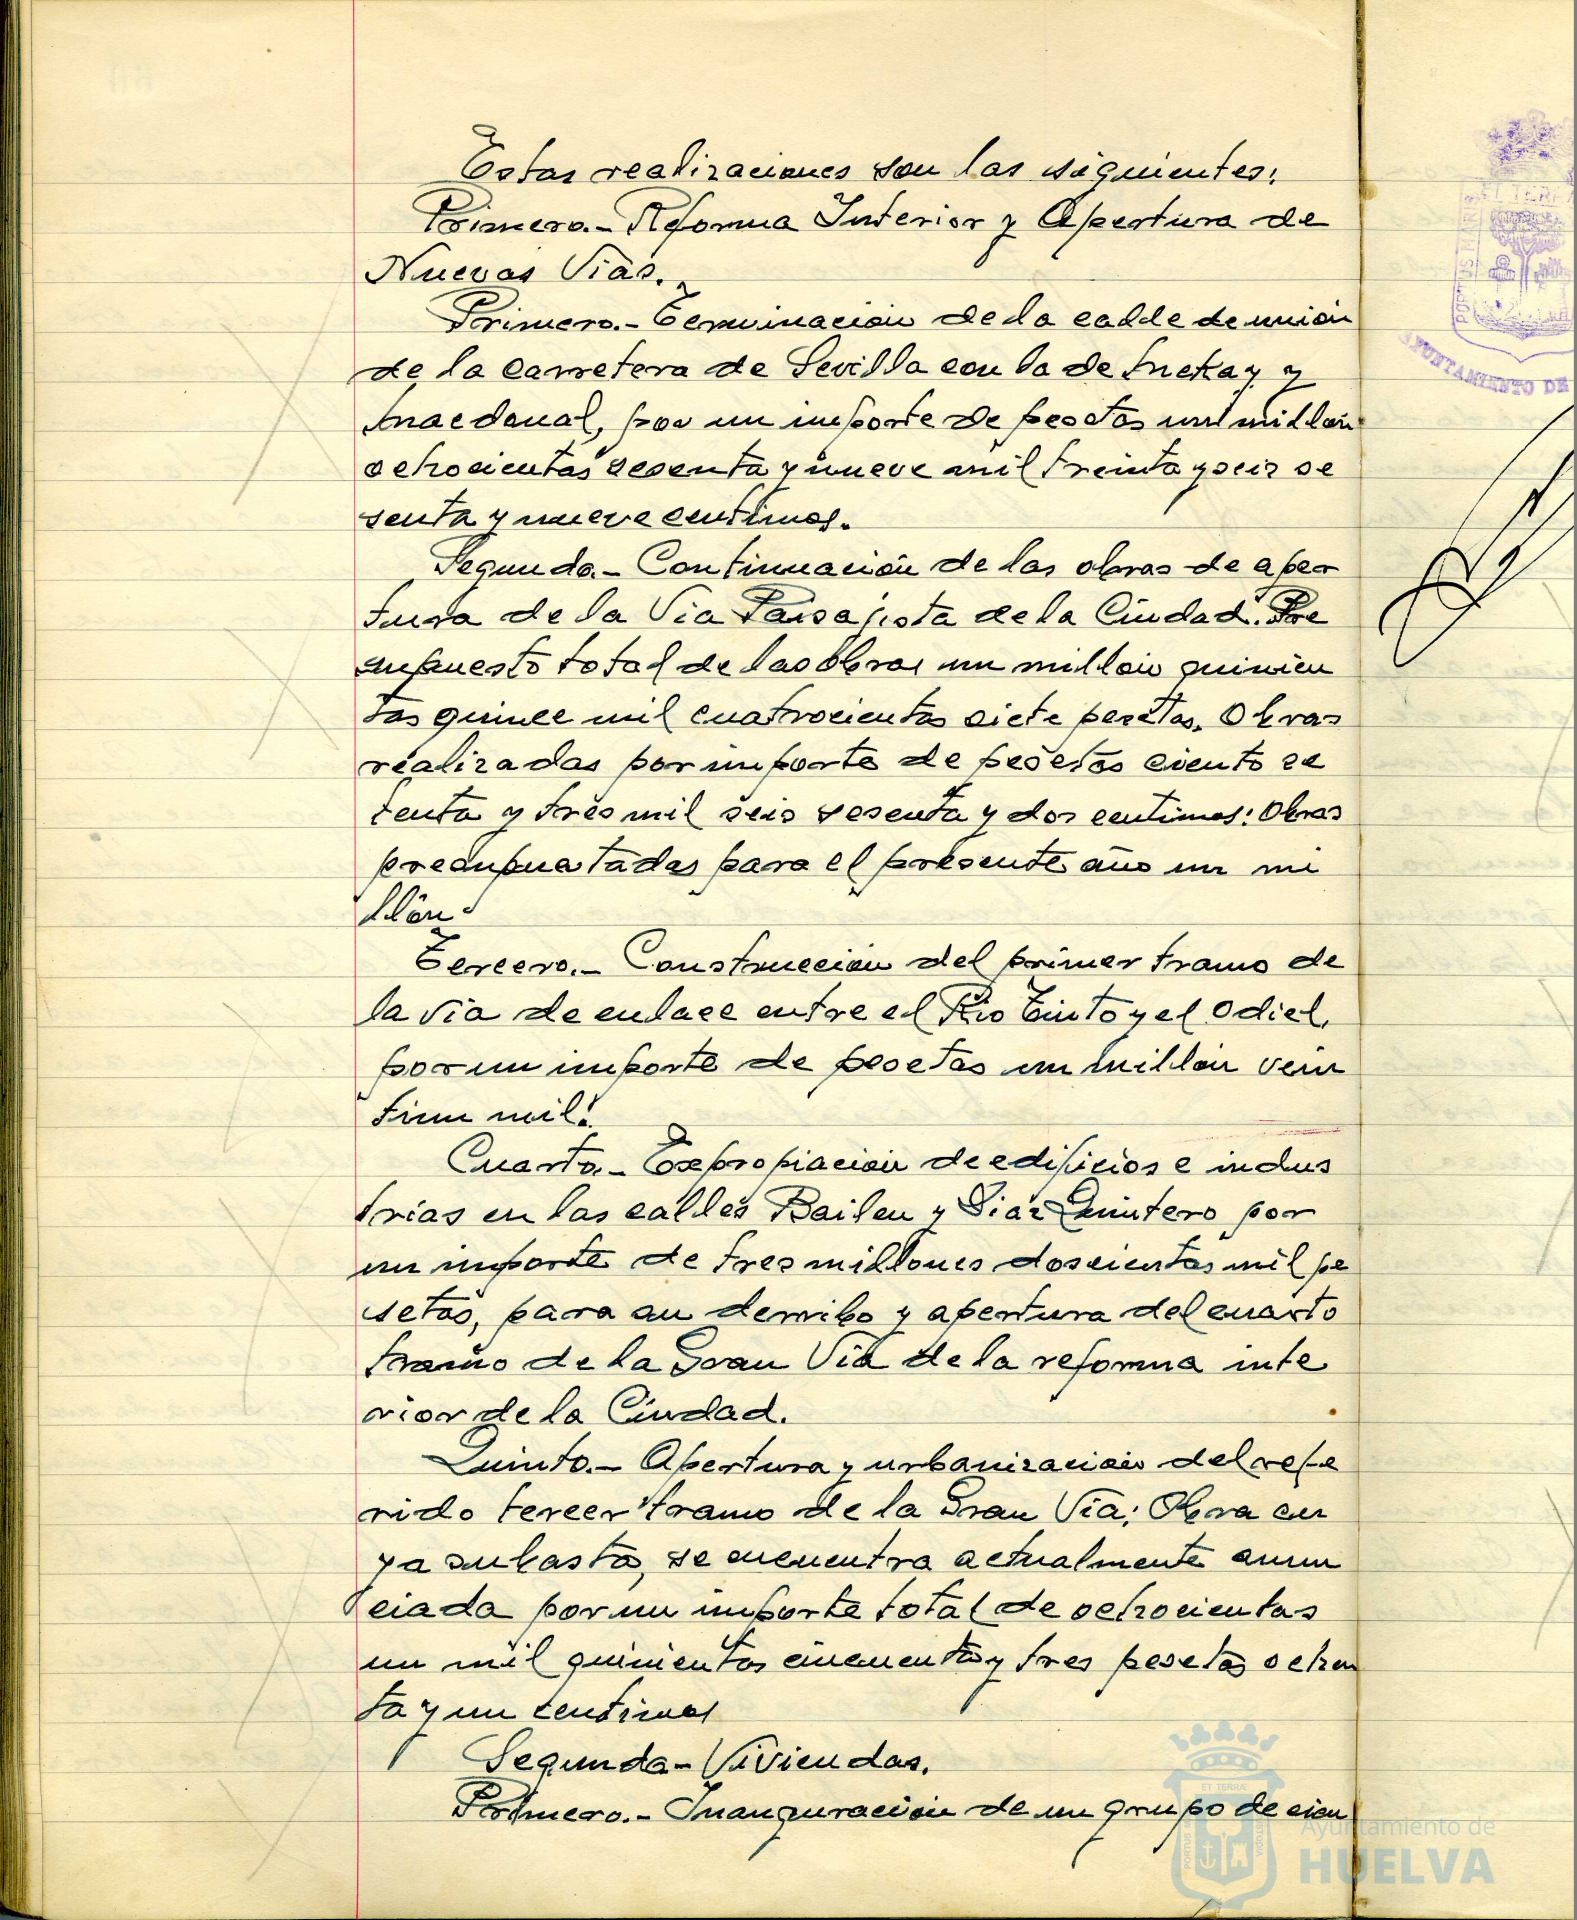 Estas realizaciones son las siguientes:
Primero.- Reforma Interior y Apertura de
Nuevas Vías.
Primero.- Terminación de la calle de unión
de la carretera de Sevilla con la de Mckay y
Macdonal, por un importe de pesetas un millón
ochocientas sesenta y nueve mil treinta y seis se
senta y nueve centimos.
Segundo.- Continuación de las obras de aper
tura de la Via Paisajista de la Ciudad. Pre
supuesto total de las obras un millón quinien
tas quince mil cuatrocientas siete pesetas. Obras
realizadas por importe de pesetas ciento se
tenta y tres mil seis sesenta y dos centimos: Obras
presupuestadas para el presente año un mi
llón.
Tercero.- Construcción del primer tramo de
la via de enlace entre el Rio Tinto y el Odiel,
por un importe de pesetas un millón vein
tiun mil.
Cuarto.- Expropiación de edificios e indus
trias en las calles Bailen y Diaz Quintero por
un importe de tres millones doscientas mil pe
setas, para su derribo y apertura del cuarto
tramo de la Gran Vía de la reforma inte
rior de la Ciudad.
Quinto.- Apertura y urbanización del refe
rido tercer tramo de la Gran Vía; Obra cu
ya subasta, se encuentra actualmente anun
ciada por un importe total de ochocientas
un mil quinientas cincuenta y tres pesetas ochen
ta y un centimos
Segunda- Viviendas.
Primero.- Inauguración de un grupo de cien
PORTUS MARIS
ET TERRÆ
AYUNTAMIENTO DE
ET TERRÆ
Ayuntamiento de
HUELVA